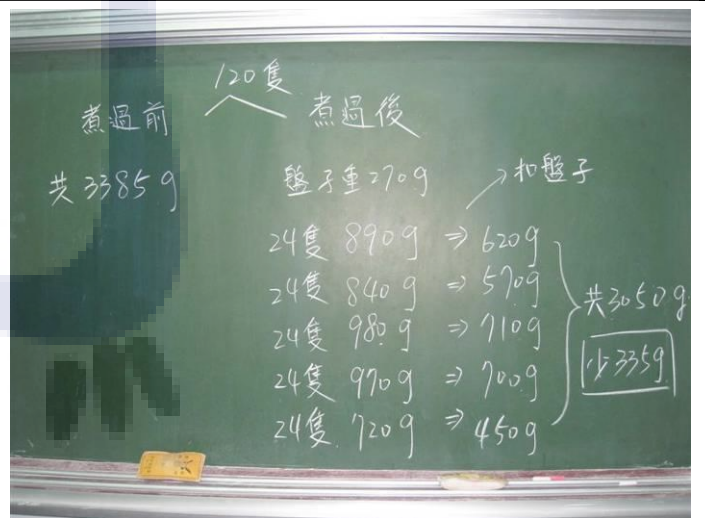 120隻
煮過前
煮過後
共3385g
盤子重270g
扣盤子
24隻 890g ⇒ 620g
24隻 840g ⇒ 570g
24隻 980g ⇒ 710g
24隻 970g ⇒ 700g
24隻 720g ⇒ 450g
共3050g
少335g